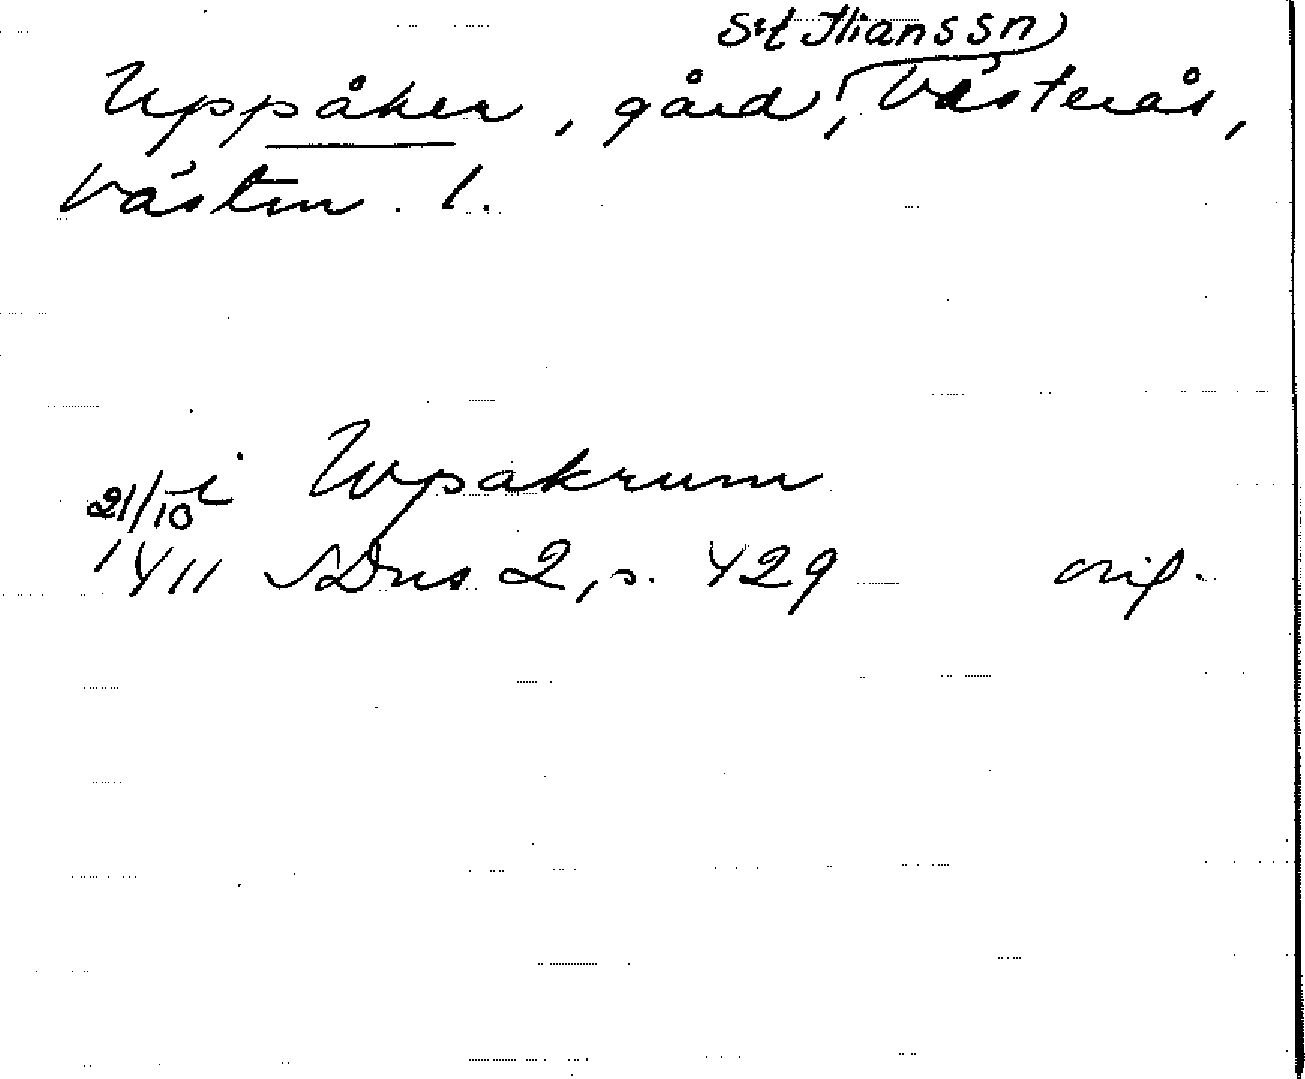 S:t Ilianssn
Uppåker, gård, Västerås,
Västm. l.
i Wpakrum
21/10
1411 SDns 2, s. 429 orig.